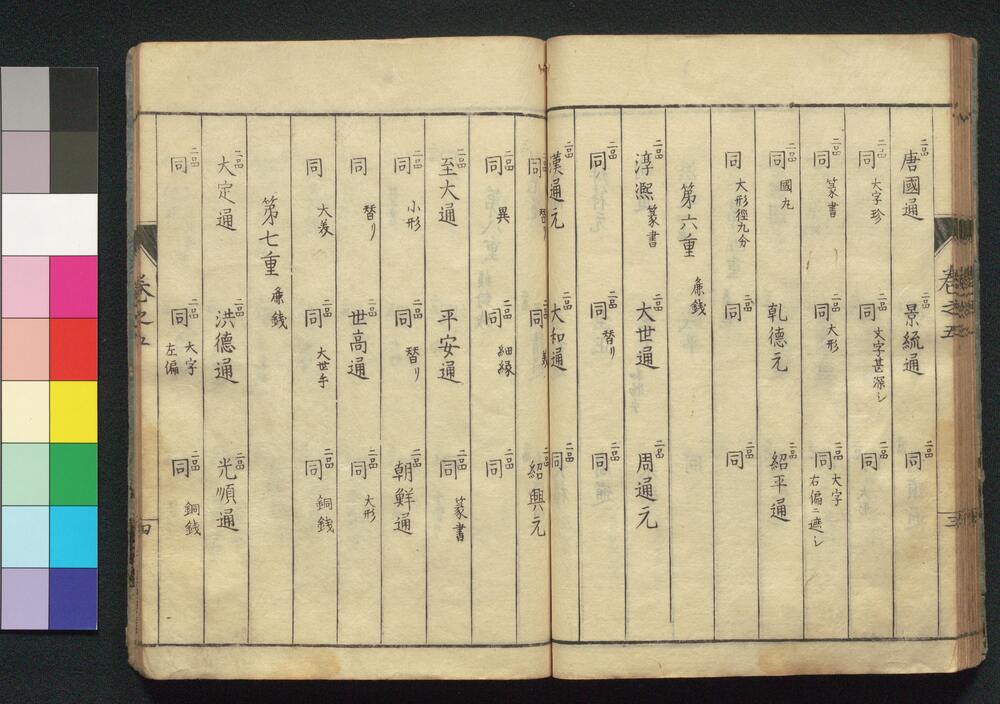 二品 唐國通 二品 景統通 二品 同
二品 同 大字珍 二品 同 文字甚深シ 二品 同
二品 同 篆書 二品 同 大形 二品 同 大字 右偏ニ遮シ
二品 同 國九 乹德元 三品 紹平通
同 大形徑九分 二品 同 二品 同
第六重 𢈘錢
二品 淳凞 篆書 二品 大世通 二品 周通元
二品 同 二品 同 替リ 二品 同
二品 漢通元 二品 大和通 二品 同
二品 同 替リ 二品 同 二品 紹興元
二品 同 異 二品 同 細縁 二品 同
二品 至大通 平安通 二品 同 篆書
二品 同 小形 二品 同 替リ 朝鮮通
同 替リ 二品 世高通 二品 同 大形
同 大美 二品 同 大世手 二品 同 銅錢
第七重
二品 大定通 二品 洪德通 二品 光順通
二品 同 二品 同 大字 左偏 二品 同 銅錢
卷之五
三
卷之五
四